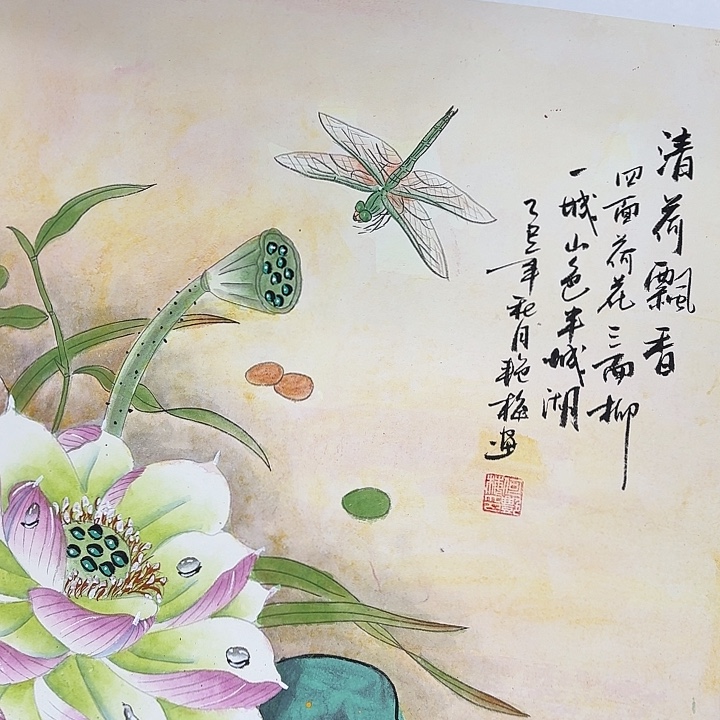 清荷飘香
四面荷花三面柳
一城山色半城湖
乙巳年秋月艳梅画